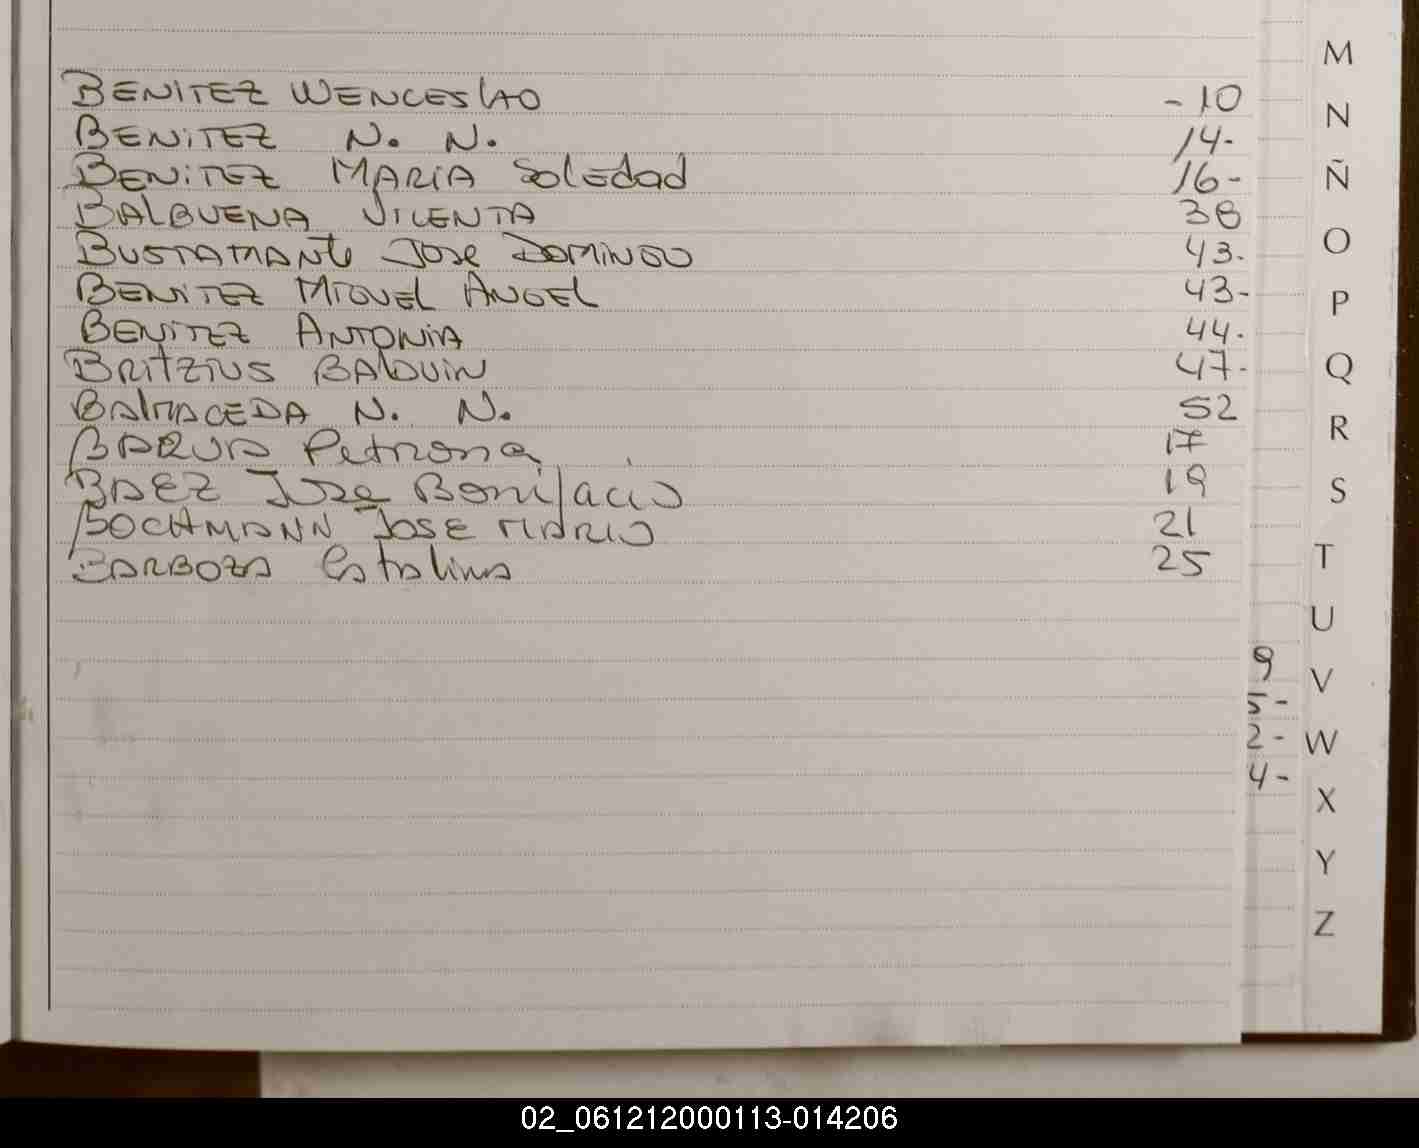 BENITEZ WENCESLAO -10
BENITEZ N. N. 14-
BENITEZ MARIA Soledad 16-
BALBUENA VICENTA 38
BUSTAMANTE JOSE DOMINGO 43.
BENITEZ MIGUEL ANGEL 43-
BENITEZ ANTONIA 44.
BRITZIUS BALDUIN 47-
BALMACEDA N. N. 52
BARUA Petrona 17
BAEZ Jose Bonifacio 19
BOCHMANN JOSE MARIO 21
BARBOZA Catalina 25
9
5-
2-
4-
M
N
Ñ
O
P
Q
R
S
T
U
V
W
X
Y
Z
02_061212000113-014206